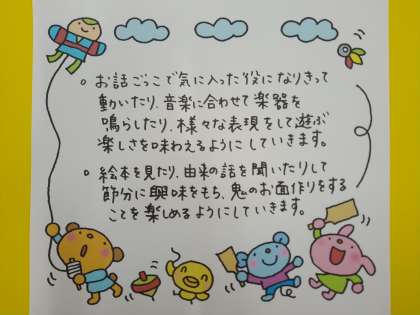 ○ お話ごっこで気に入った役になりきって
動いたり、音楽に合わせて楽器を
鳴らしたり、様々な表現をして遊ぶ
楽しさを味わえるようにしていきます。
○ 絵本を見たり、由来の話を聞いたりして
節分に興味をもち、鬼のお面作りをする
ことを楽しめるようにしていきます。